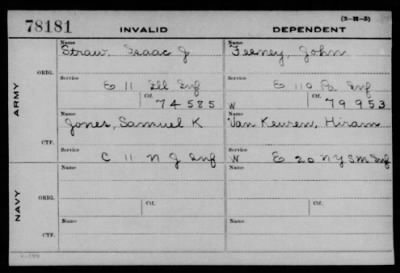 78181 INVALID DEPENDENT (3-H-3)
ARMY
ORIG.
Name Straw, Isaac J Name Feeney, John
Service E 11 Ill Inf Service E 110 Pa Inf
Ctf. 74585 W Ctf. 79953
CTF.
Name Jones, Samuel K Name Van Keuren, Hiram
Service C 11 N J Inf Service W E 20 N Y S M Inf
NAVY
ORIG.
Name Name
Service Ctf. Service Ctf.
CTF.
Name Name